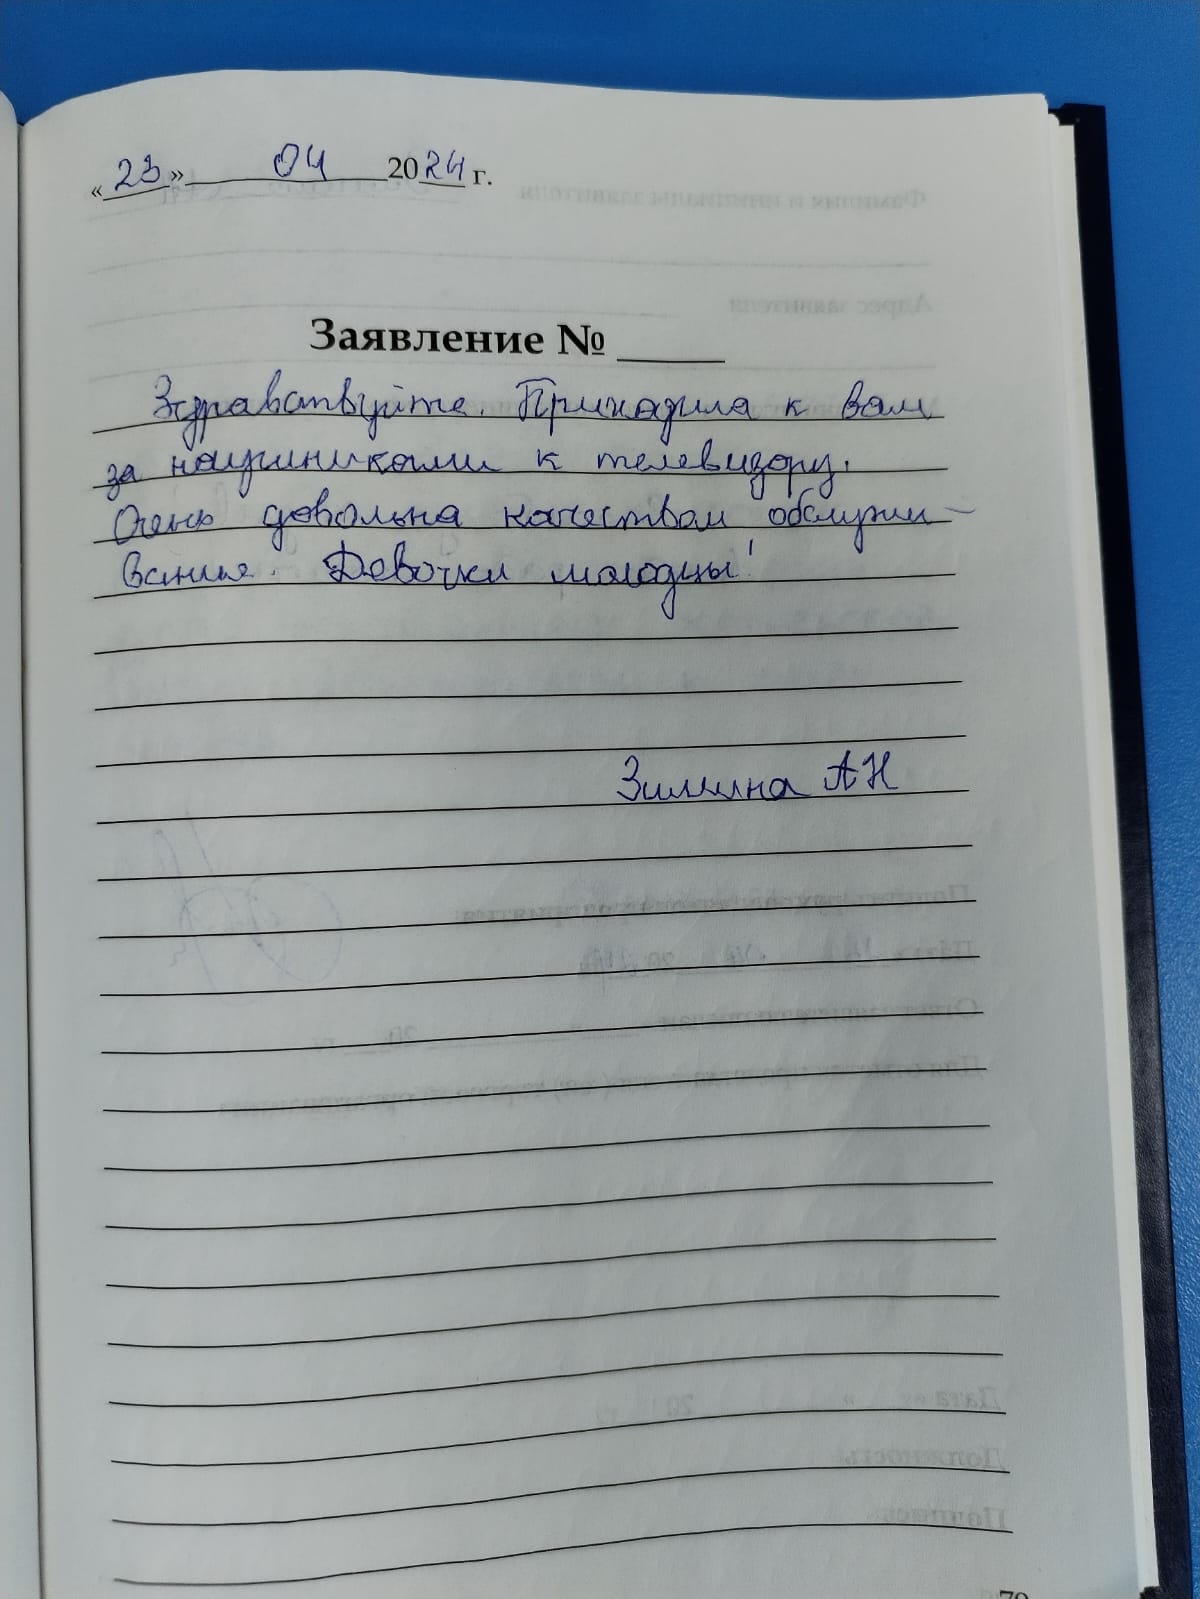 « 23 » 04 2024 г.
Заявление № _____
Здравствуйте. Приходила к вам
за наушниками к телевизору.
Очень довольна качеством обслужи-
вания. Девочки молодцы!
Зимина АН